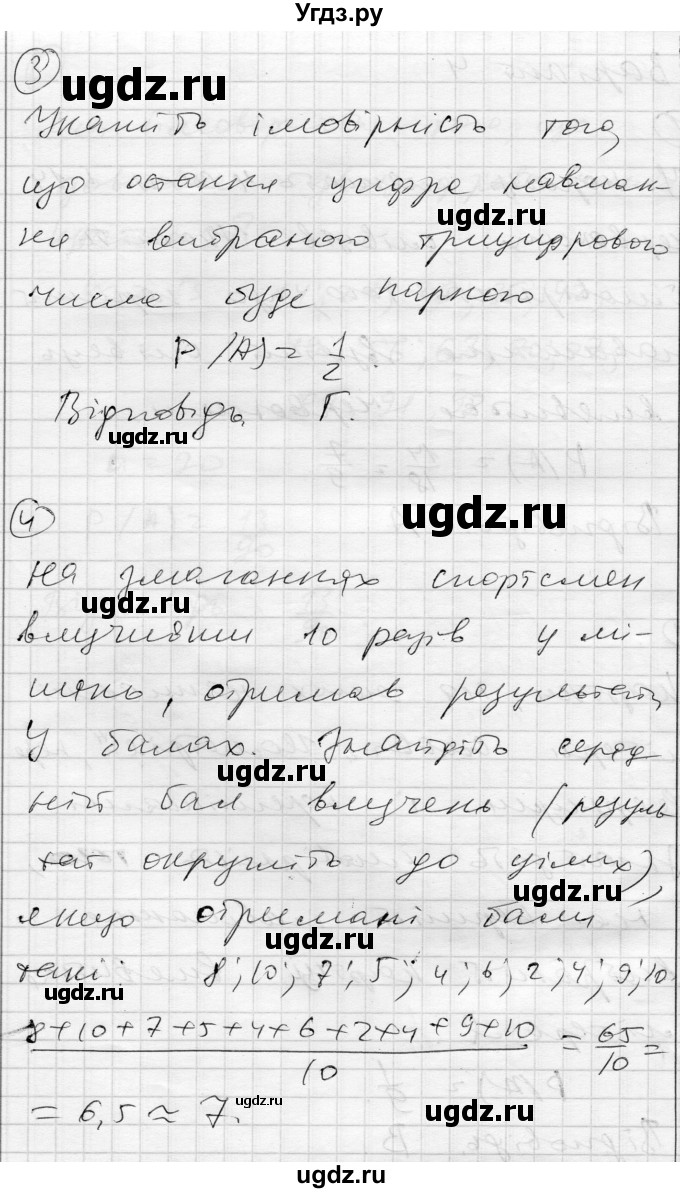 Угдз.ру
3
ugdz.ru
Укажіть імовірність того,
що остання цифра навман-
ugdz.ru
ня вибраного трицифрового
числа буде парною
P(A) = 1/2.
Відповідь. Г.
ugdz.ru
ugdz.ru
4
На змаганнях спортсмен
ugdz.ru
влучивши 10 разів у мі-
шень, отримав результати
у балах. Знайдіть серед
ugdz.ru
ній бал влучень (резуль
тат округліть до цілих),
ugdz.ru
якщо отримані бали
ugdz.ru
такі 8; 10; 7; 5; 4; 6; 2; 4; 9; 10
ugdz.ru
8+10+7+5+4+6+2+4+9+10/10 = 65/10 =
= 6,5 ≈ 7.
ugdz.ru
ugdz.ru
ugdz.ru